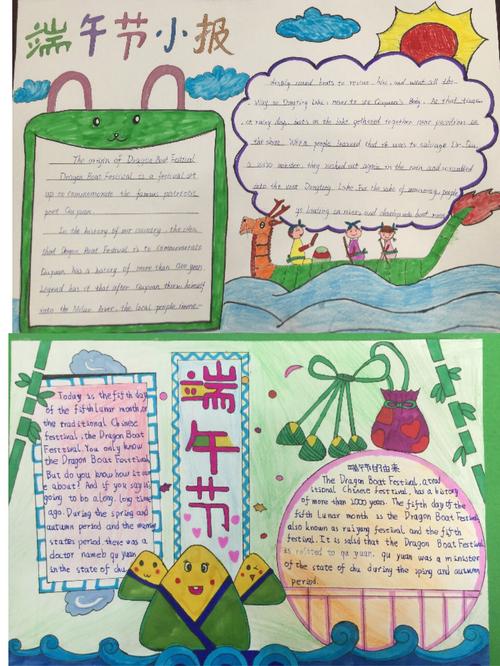 端午节小报
The origin of Dragon Boat Festival
Dragon Boat Festival is a festival set
up to commemorate the famous patriotic
poet Qu yuan.
In the history of our country, the idea
that Dragon Boat Festival is to commemorate
Quyuan has a history of more than years
Legend has it that after Quyuan threw himself
into the Miluo River, the local people
boats to rescue him, and went all the
way to Dongting Lake, never to see Quyuan's Body. At that time
a rainy day, boats on the lake gathered together near pavilions on
the shore. When people learned that it was to salvage Dr.
minister, they rushed out again in the rain and scrambled
into the vast Dongting Lake. For the sake of people
go boating on rivers and boat
Today is the fifth day
of the fifth lunar month or
the traditional Chinese
festival, the Dragon Boat
Festival. You only know
the Dragon Boat Festival.
But do you know how it came
about? And if you say is
going to be a long, long time
ago. During the spring and
autumn period and the warring
states period. there was a
doctor nameb qu yuan
in the state of chu
端午节
端午节的由来
The Dragon Boat Festival, a trad
itional Chinese festival, has a history
of more than 1000 years. The fifth day of the
fifth Lunar month is the Dragon Boat Festival
also known as ruiyang festival and the fifth
festival. It is said that the Dragon Boat Festival
is related to qu yuan. qu yuan was a minister
of the state of chu during the sping and autumn
period.